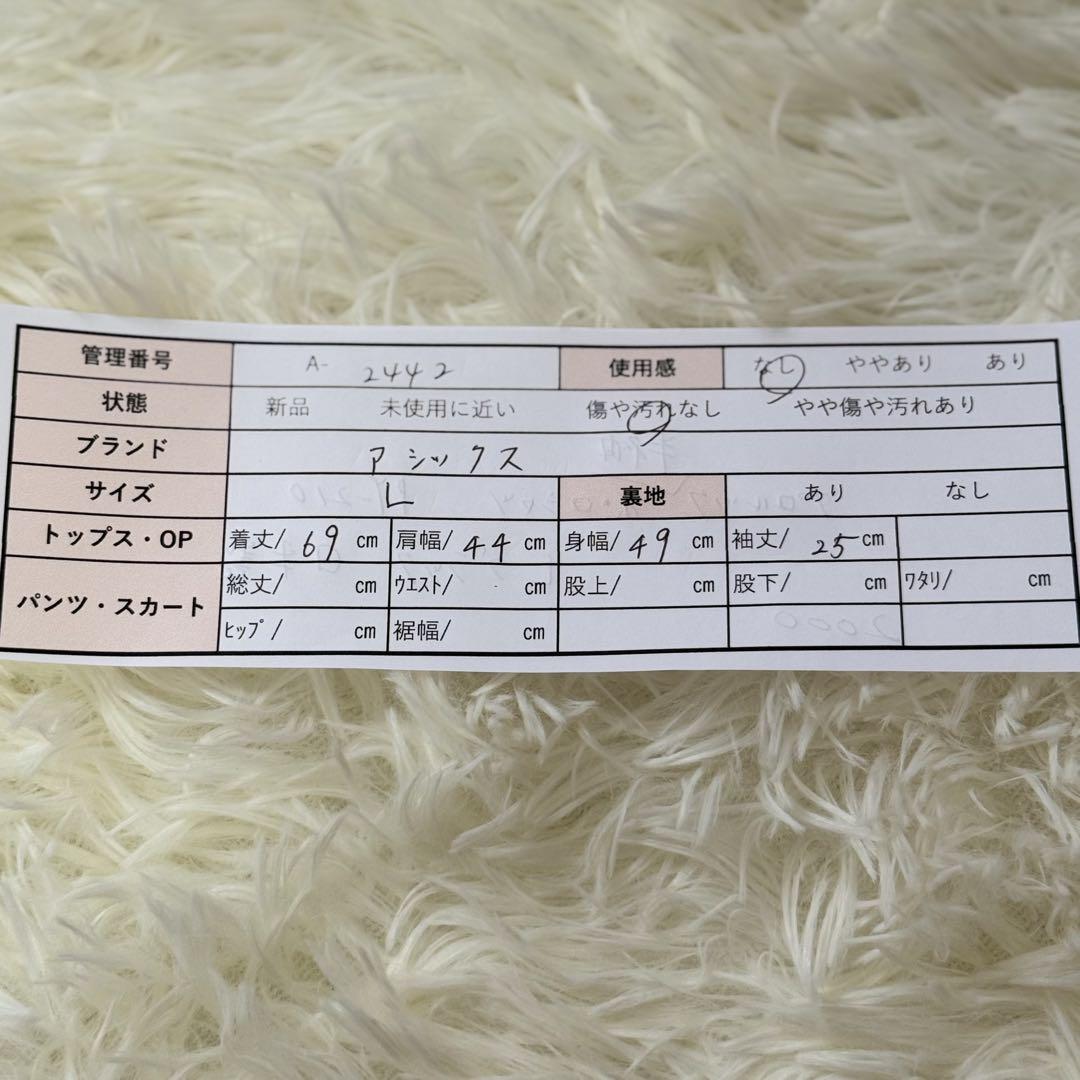 管理番号 A- 2442 使用感 なし ややあり あり
状態 新品 未使用に近い 傷や汚れなし やや傷や汚れあり
ブランド アシックス
サイズ L 裏地 あり なし
トップス・OP 着丈/ 69 cm 肩幅/ 44 cm 身幅/ 49 cm 袖丈/ 25 cm
パンツ・スカート 総丈/ cm ｳｴｽﾄ/ cm 股上/ cm 股下/ cm ﾜﾀﾘ/ cm
ﾋｯﾌﾟ/ cm 裾幅/ cm
2000